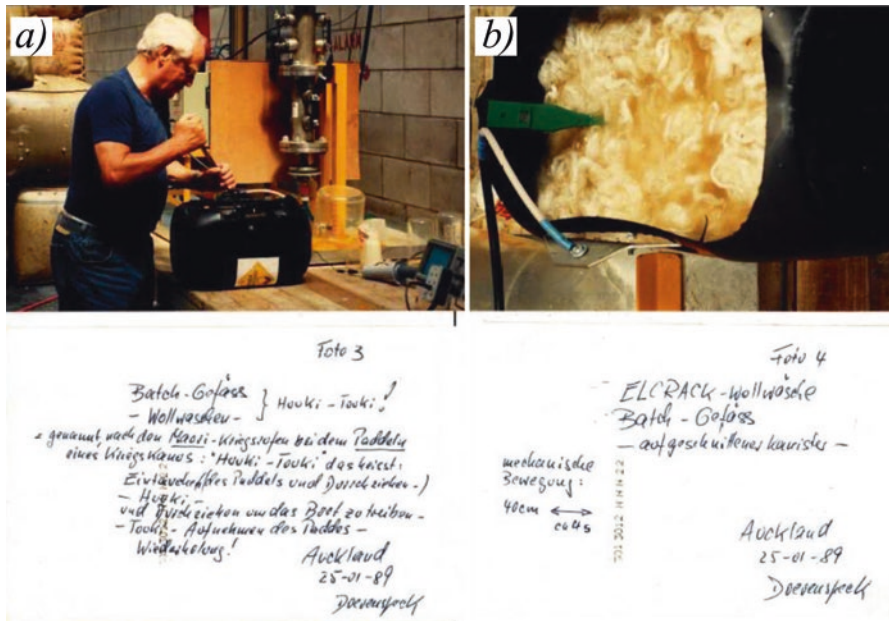 a)
b)
Foto 3
Batch-Gefäss
- Wollwaschen -
} Houki-Touki!
= genannt nach den Maori-Kriegsrufen bei dem Paddeln
eines Kriegskanus: "Houki-Touki" das heisst:
Eintauchen des Paddels und Durchziehen -)
- Houki -
und durchziehen um das Boot zu treiben -
- Touki - Aufnehmen des Paddels -
Wiederholung!
Auckland
25-01-89
Doevenspeck
Foto 4
ELCRACK-Wollwäsche
Batch-Gefäss
- aufgeschnittener Kanister -
mechanische
Bewegung:
40cm ↔
ca 4s
Auckland
25-01-89
Doevenspeck